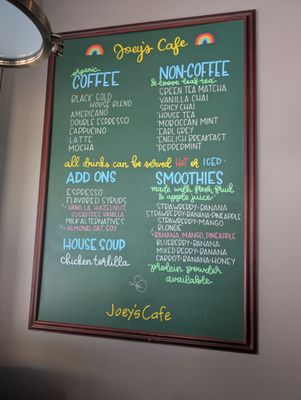 Joey's Cafe
organic
COFFEE
BLACK GOLD
HOUSE BLEND
AMERICANO
DOUBLE ESPRESSO
CAPPUCINO
LATTE
MOCHA
NON-COFFEE
& loose leaf tea
GREEN TEA MATCHA
VANILLA CHAI
SPICY CHAI
*HOUSE TEA
*MOROCCAN MINT
*EARL GREY
*ENGLISH BREAKFAST
*PEPPERMINT
all drinks can be served HOT or ICED
ADD ONS
ESPRESSO
FLAVORED SYRUPS
VANILLA, HAZELNUT,
SUGARFREE VANILLA
MILK ALTERNATIVES
ALMOND, OAT, SOY
HOUSE SOUP
chicken tortilla
SMOOTHIES
made with fresh fruit
& apple juice
STRAWBERRY-BANANA
STRAWBERRY-BANANA-PINEAPPLE
STRAWBERRY-MANGO
BLONDE
BANANA, MANGO, PINEAPPLE
BLUEBERRY-BANANA
MIXED BERRY-BANANA
CARROT-BANANA-HONEY
*protein powder
available
Joey's Cafe